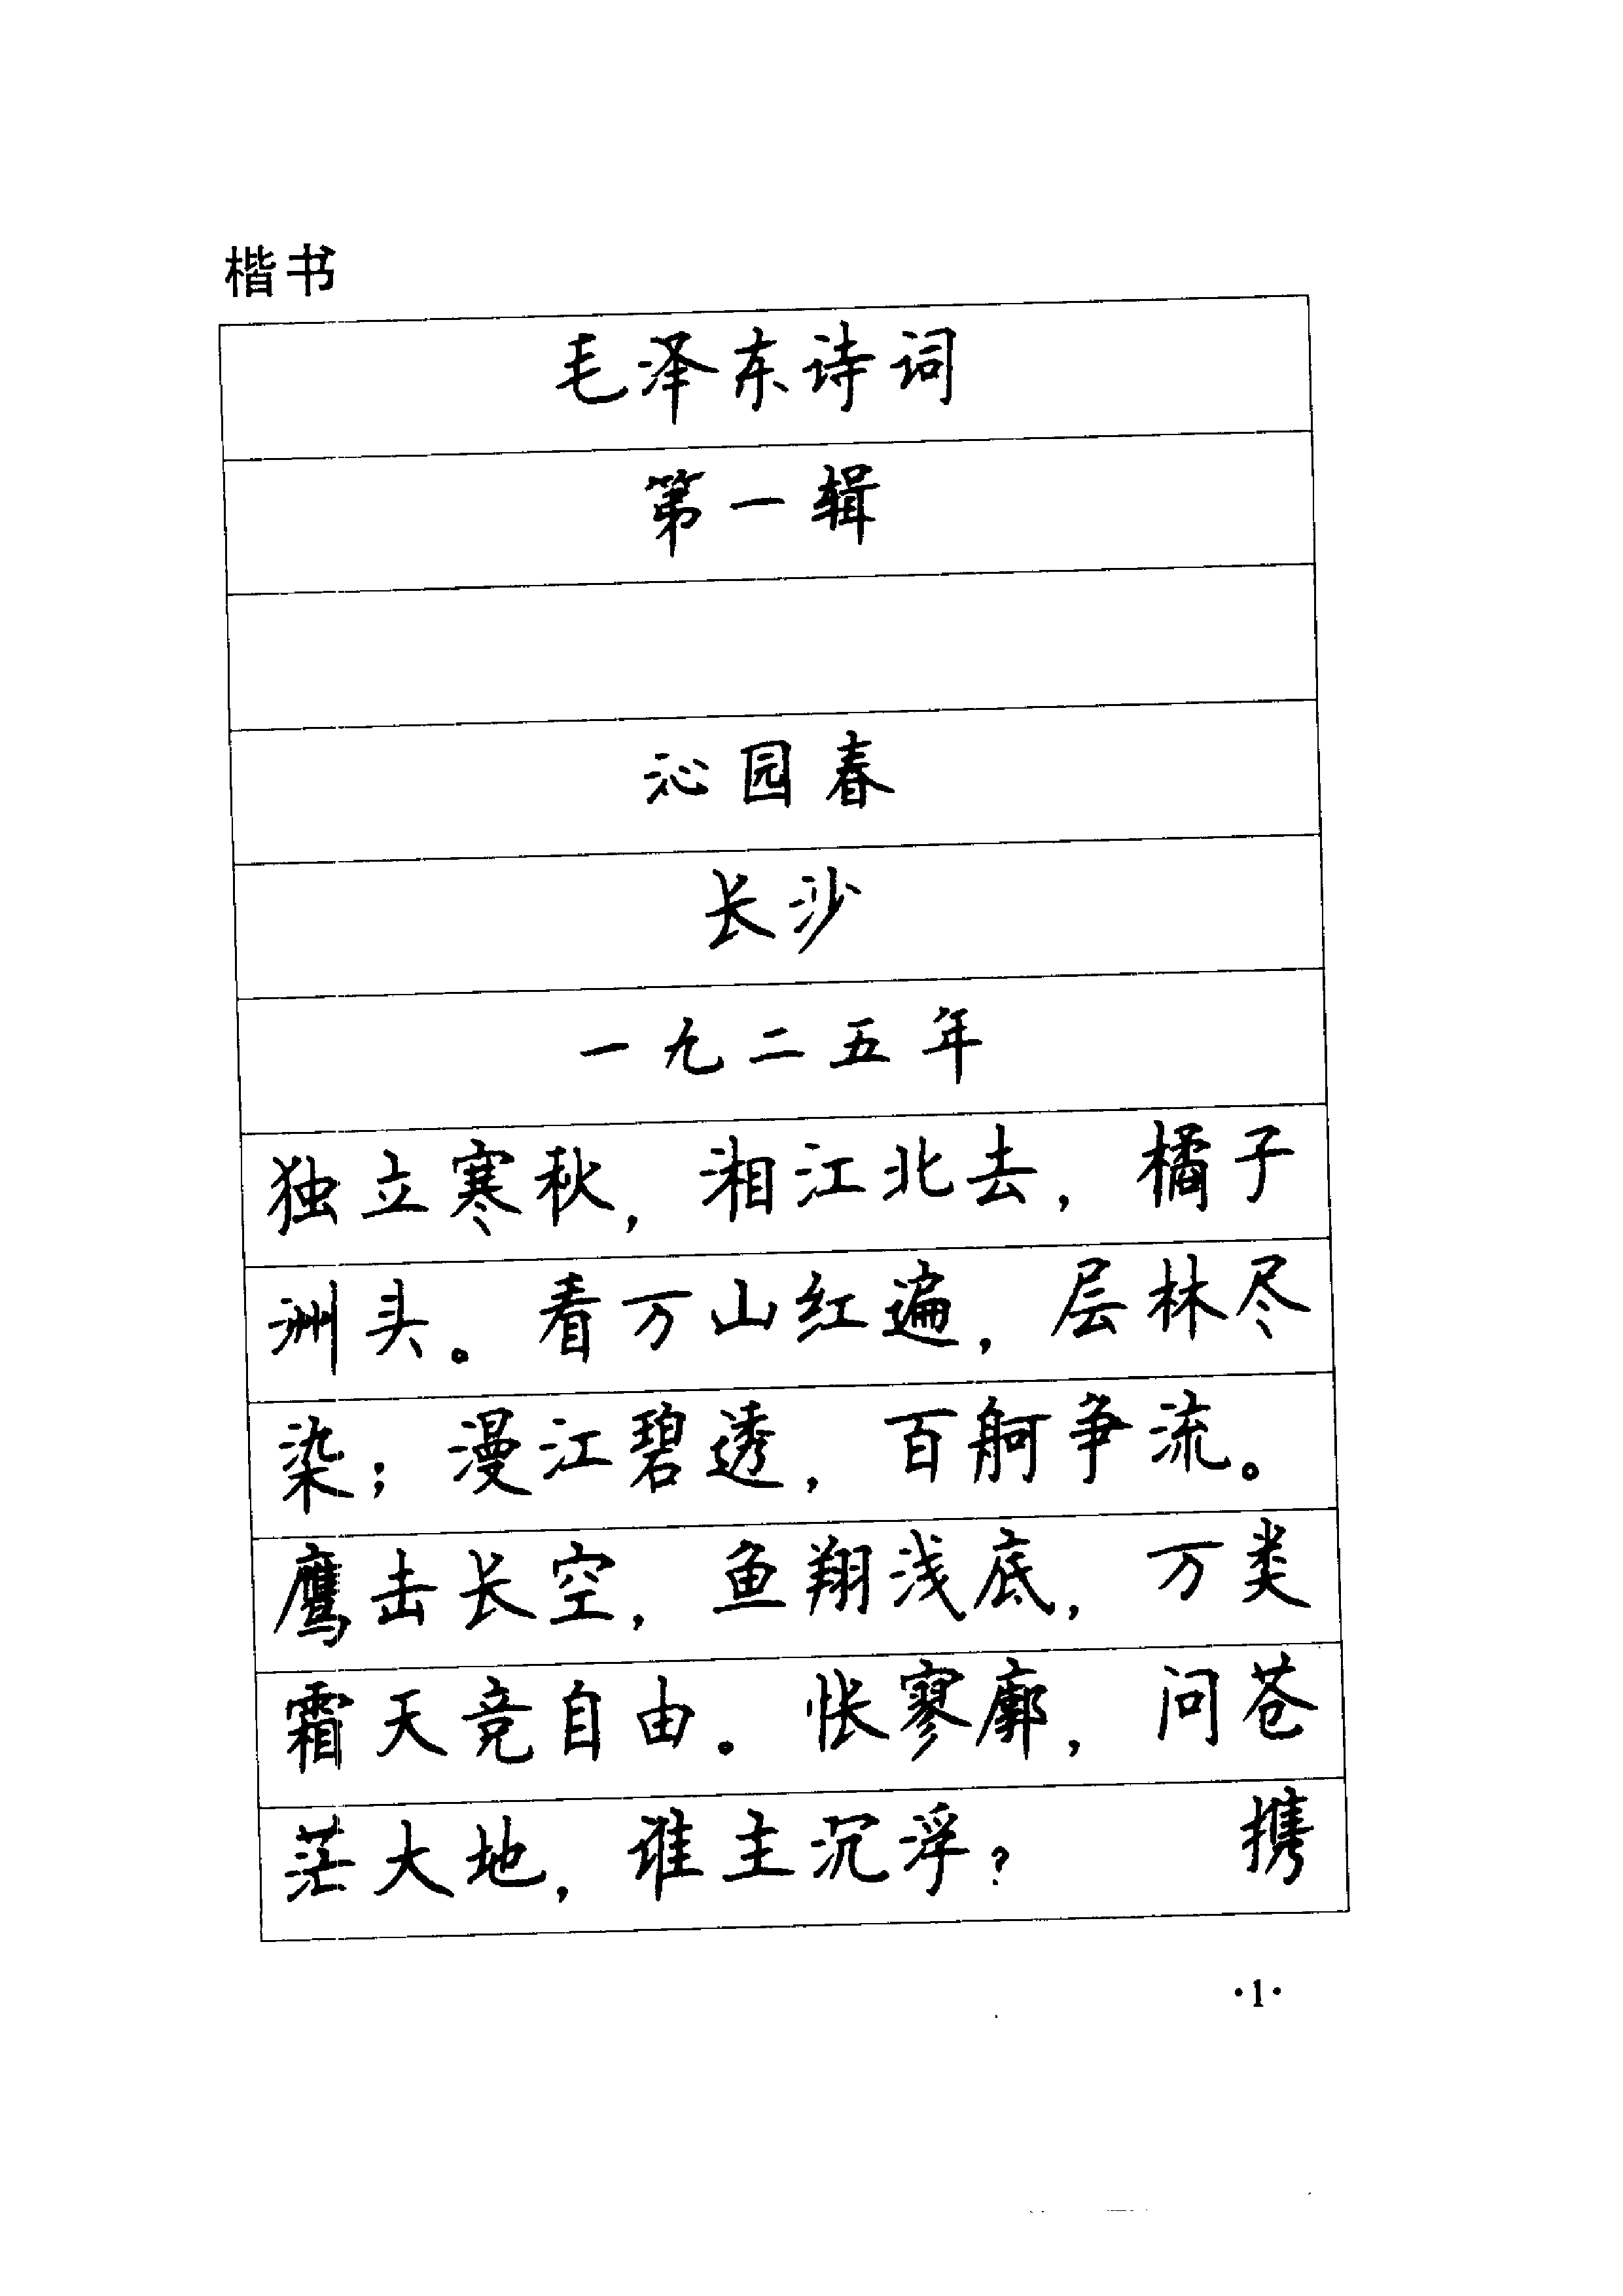 楷书
毛泽东诗词
第一辑
沁园春
长沙
一九二五年
独立寒秋，湘江北去，橘子
洲头。看万山红遍，层林尽
染；漫江碧透，百舸争流。
鹰击长空，鱼翔浅底，万类
霜天竞自由。怅寥廓，问苍
茫大地，谁主沉浮？ 携
·1·